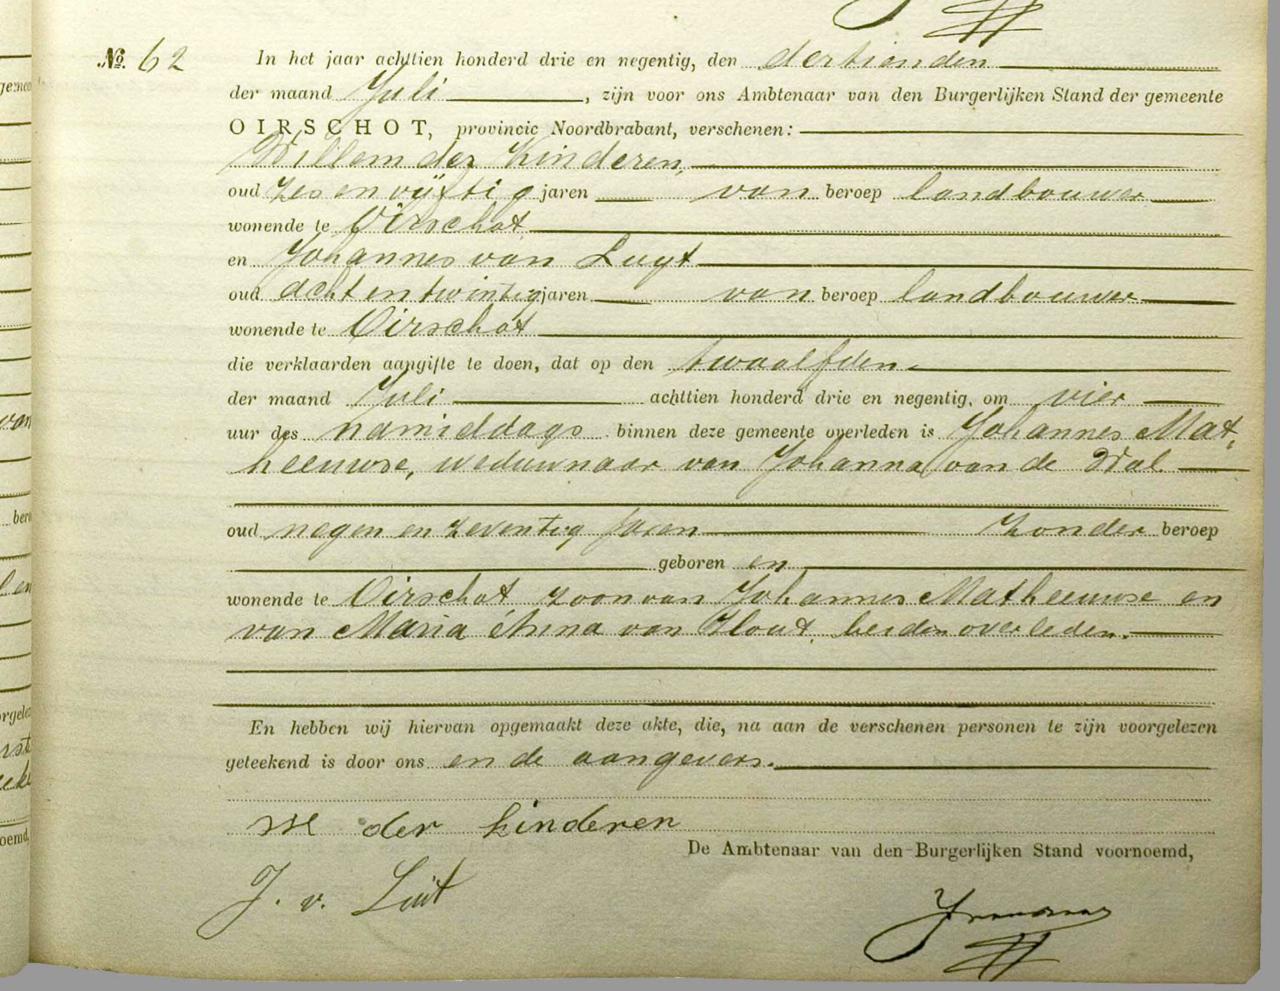 №. 62 In het jaar achttien honderd drie en negentig, den dertienden
der maand Juli, zijn voor ons Ambtenaar van den Burgerlijken Stand der gemeente
OIRSCHOT, provincie Noordbrabant, verschenen:
Willem der Kinderen,
oud zes en vijftig jaren van beroep landbouwer
wonende te Oirschot
en Johannes van Luyt
oud acht en twintig jaren van beroep landbouwer
wonende te Oirschot
die verklaarden aangifte te doen, dat op den twaalfden
der maand Juli achttien honderd drie en negentig, om vier
uur des namiddags binnen deze gemeente overleden is Johannes Mat-
heeuwse, weduwnaar van Johanna van de Wal
oud negen en zeventig jaren zonder beroep
geboren en
wonende te Oirschot zoon van Johannes Matheeuwse en
van Maria Anna van Hout, beiden overleden.
En hebben wij hiervan opgemaakt deze akte, die, na aan de verschenen personen te zijn voorgelezen
geteekend is door ons en de aangevers.
W der kinderen
De Ambtenaar van den Burgerlijken Stand voornoemd,
J. v. Luit